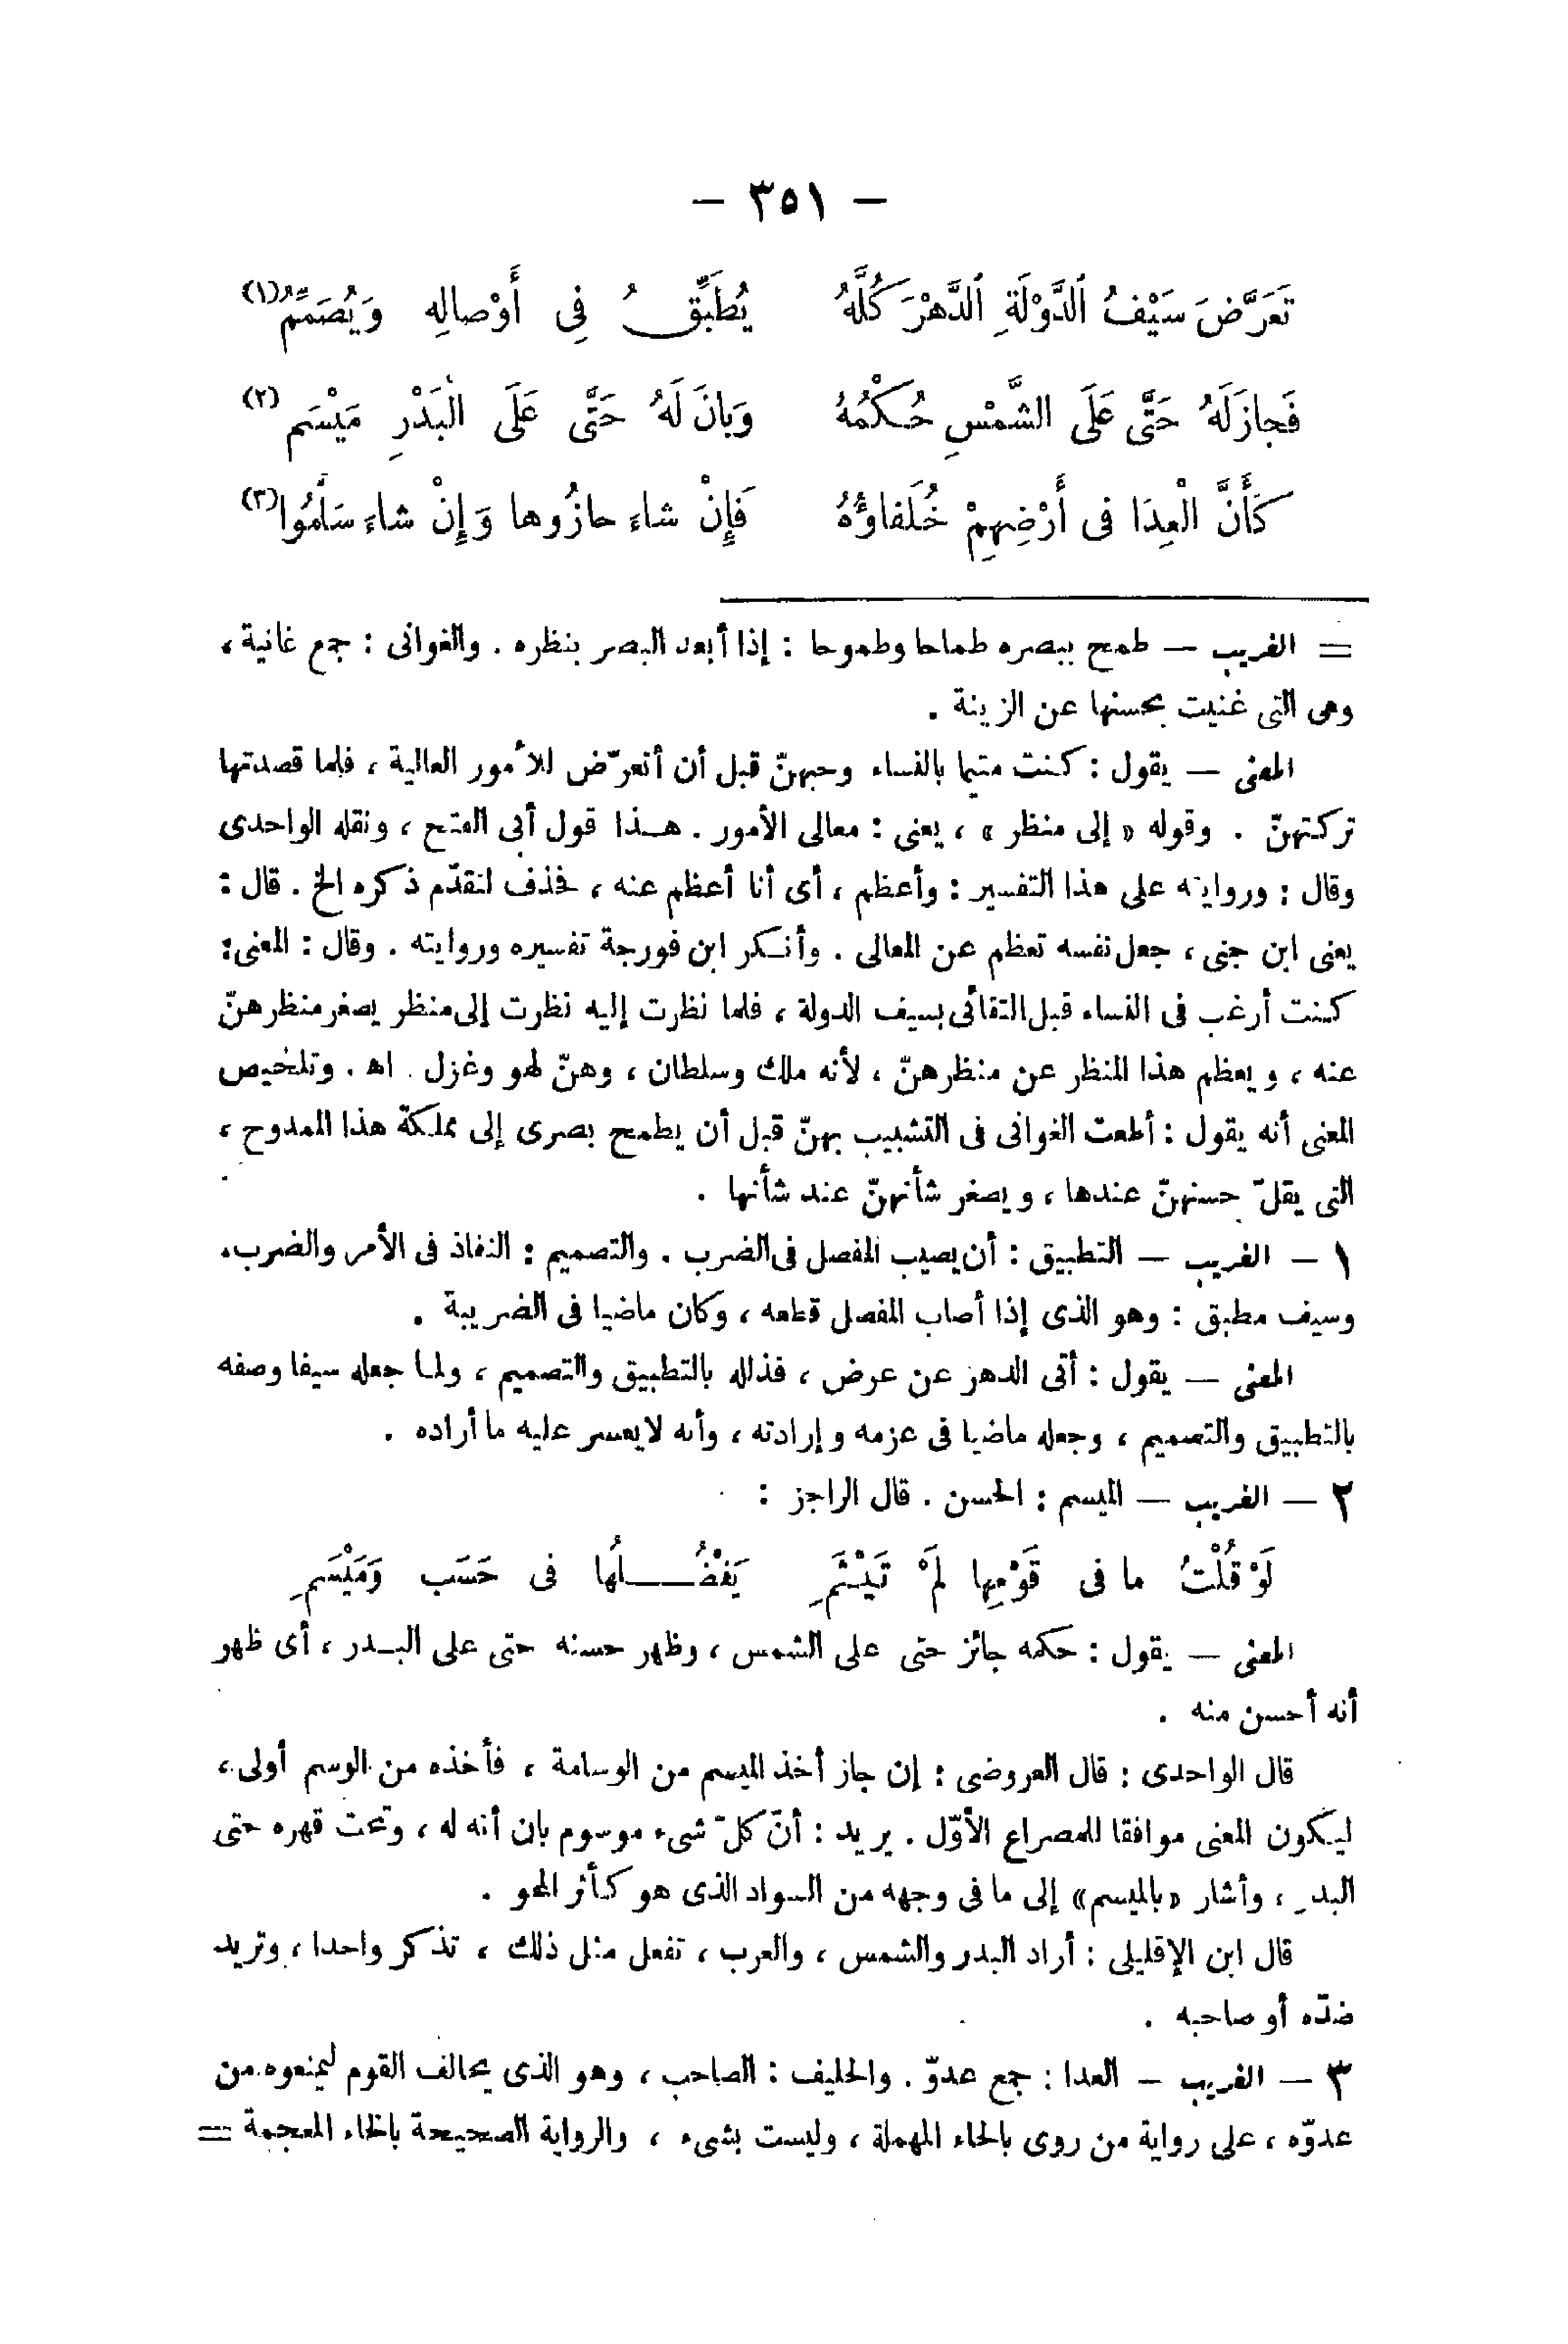 — ٣٥١ —
تَعَرَّضَ سَيْفُ ٱلدَّوْلَةِ ٱلدَّهْرَ كُلَّهُ    يُطَبِّقُ فِى أَوْصالِهِ وَيُصَمِّمُ (١)
فَجازَ لَهُ حَتَّى عَلَى الشَّمْسِ حُكْمُهُ    وَبانَ لَهُ حَتَّى عَلَى الْبَدْرِ مَيْسَم (٢)
كَأَنَّ الْعِدَا فى أَرْضِهِمْ خُلَفاؤُهُ    فَإِنْ شاءَ حازُوها وَإِنْ شاءَ سَلَّمُوا (٣)
= الغريب — طمح ببصره طماحا وطموحا : إذا أبعد البصر بنظره . والغوانى : جمع غانية ،
وهى التى غنيت بحسنها عن الزينة .
المعنى — يقول : كنت متيما بالنساء وحبهنّ قبل أن أتعرّض للأمور العالية ، فلما قصدتها
تركتهنّ . وقوله « إلى منظر » ، يعنى : معالى الأمور . هذا قول أبى الفتح ، ونقله الواحدى
وقال : وروايته على هذا التفسير : وأعظم ، أى أنا أعظم عنه ، فحذف لتقدّم ذكره الخ . قال :
يعنى ابن جنى ، جعل نفسه تعظم عن المعالى . وأنكر ابن فورجة تفسيره وروايته . وقال : المعنى :
كنت أرغب فى النساء قبل التقائى بسيف الدولة ، فلما نظرت إليه نظرت إلى منظر يصغر منظرهنّ
عنه ، ويعظم هذا المنظر عن منظرهنّ ، لأنه ملك وسلطان ، وهنّ لهو وغزل . اه . وتلخيص
المعنى أنه يقول : أطعت الغوانى فى التشبيب بهنّ قبل أن يطمح بصرى إلى مملكة هذا الممدوح ،
التى يقلّ حسنهنّ عندها ، ويصغر شأنهنّ عند شأنها .
١ — الغريب — التطبيق : أن يصيب المفصل فى الضرب . والتصميم : النفاذ فى الأمر والضرب.
وسيف مطبق : وهو الذى إذا أصاب المفصل قطعه ، وكان ماضيا فى الضريبة .
المعنى — يقول : أتى الدهر عن عرض ، فذلله بالتطبيق والتصميم ، ولما جعله سيفا وصفه
بالتطبيق والتصميم ، وجعله ماضيا فى عزمه وإرادته ، وأنه لايعسر عليه ما أراده .
٢ — الغريب — الميسم : الحسن . قال الراجز :
لَوْ قُلْتُ ما فى قَوْمِها لَمْ تَيْثَمِ    يَفْضُلُها فى حَسَب وَمَيْسَمِ
المعنى — يقول : حكمه جائز حتى على الشمس ، وظهر حسنه حتى على البدر ، أى ظهر
أنه أحسن منه .
قال الواحدى : قال العروضى : إن جاز أخذ الميسم من الوسامة ، فأخذه من الوسم أولى ،
ليكون المعنى موافقا للمصراع الأوّل . يريد : أنّ كلّ شىء موسوم بان أنه له ، وتحت قهره حتى
البدر ، وأشار «بالميسم» إلى ما فى وجهه من السواد الذى هو كأثر المحو .
قال ابن الإقليلى : أراد البدر والشمس ، والعرب ، تفعل مثل ذلك ، تذكر واحدا ، وتريد
ضدّه أو صاحبه .
٣ — الغريب — العدا : جمع عدوّ . والحليف : الصاحب ، وهو الذى يحالف القوم ليمنعوه من
عدوّه ، على رواية من روى بالحاء المهملة ، وليست بشىء ، والرواية الصحيحة بالخاء المعجمة =